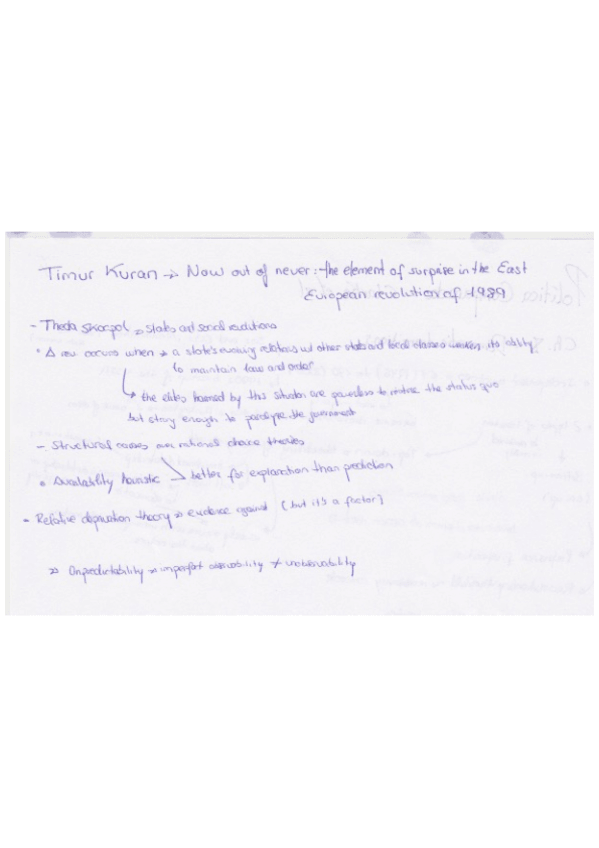 Timur Kuran → Now out of never: the element of surprise in the East
European revolution of 1989
- Theda Skocpol → States and social revolutions
• A rev occurs when → a state's evolving relations w/ other states and local classes weaken its ability
to maintain law and order
↳ the elites harmed by this situation are powerless to restore the status quo
but strong enough to paralyze the government
- Structural causes over rational choice theories
• Availability heuristic → better for explanation than prediction
- Relative deprivation theory → evidence against (but it's a factor)
→ Unpredictability → imperfect observability ≠ unobservability